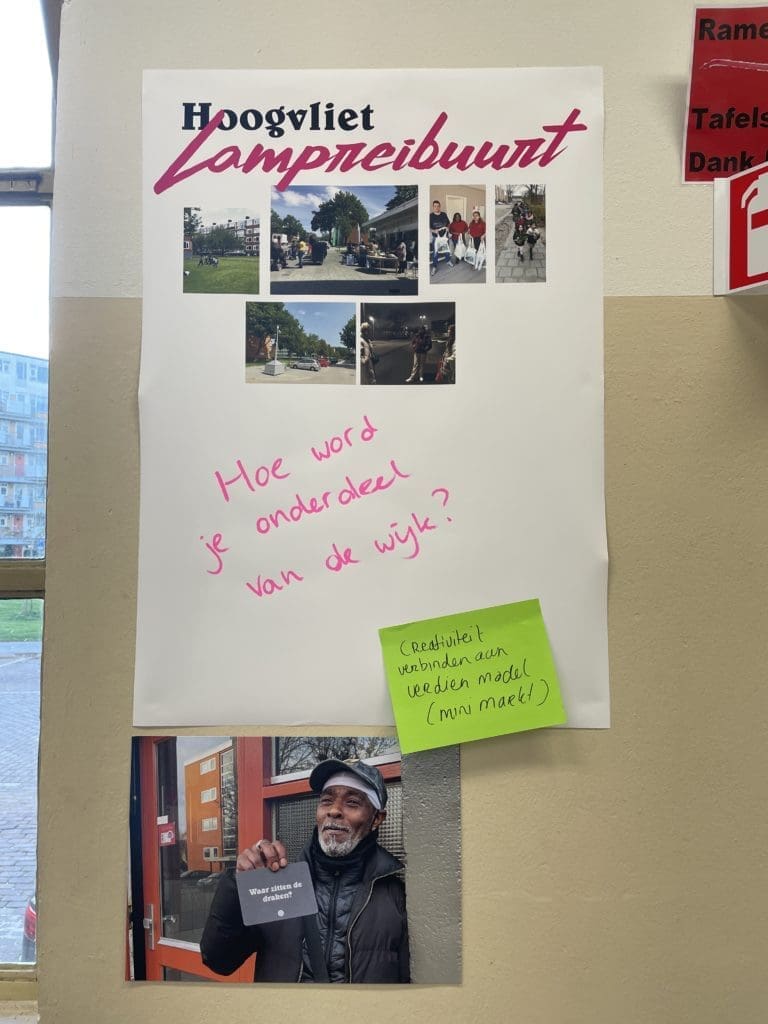 Hoogvliet
Lampreibuurt
Hoe word
je onderdeel
van de wijk?
Creativiteit
verbinden aan
verdien model
(mini markt)
Waar zitten de
draken?
Rame
Tafels
Dank